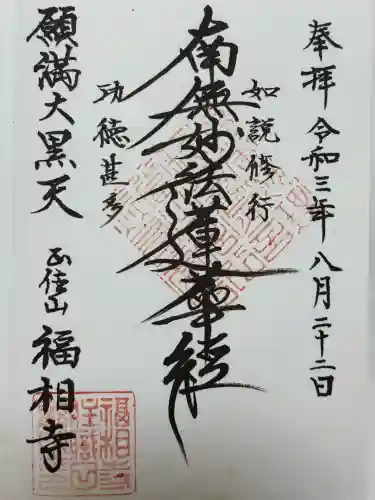 奉拝 令和三年 八月二十二日
如説修行
南無妙法蓮華経
功徳甚多
願満大黒天
正住山 福相寺